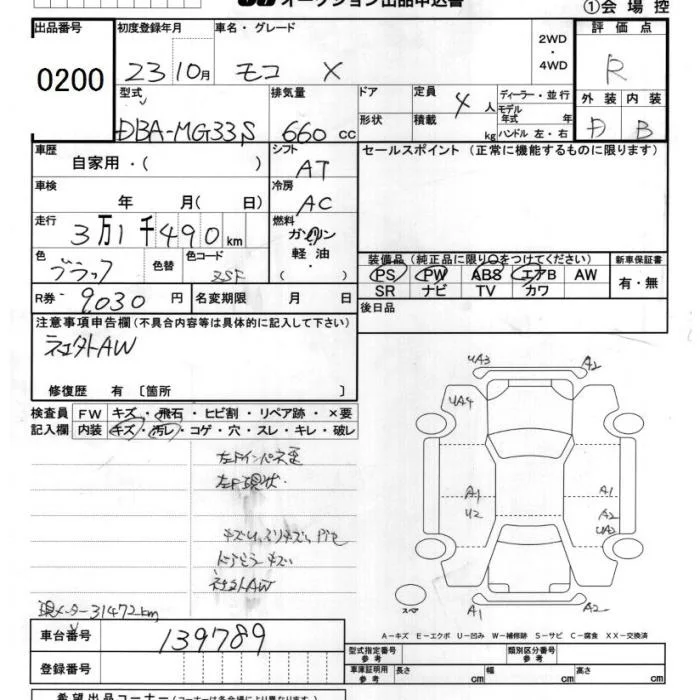 オークション出品申込書
①会場控
出品番号
0200
初度登録年月
23 10月
車名・グレード
モコ X
2WD
・
4WD
評価点
R
外装 内装
D B
型式
DBA-MG33S
排気量
660 cc
ドア
形状
定員 4 人
積載 kg
ディーラー・並行
モデル年式 年
ハンドル 左・右
車歴
自家用・( )
シフト
AT
セールスポイント (正常に機能するものに限ります)
車検
年 月( 日)
冷房
AC
走行
3万1千490km
燃料
ガソリン
軽油
( )
色
ブラック
色替
色コード
ZSF
装備品 (純正品に限り○をつけてください)
PS PW ABS エアB AW
SR ナビ TV カワ
新車保証書
有・無
R券 9,030 円
名変期限 月 日
後日品
注意事項申告欄 (不具合内容等は具体的に記入して下さい)
社外AW
修復歴 有 〔箇所 〕
検査員
記入欄
FW キズ・飛石・ヒビ割・リペア跡・×要
内装 キズ・汚レ・コゲ・穴・スレ・キレ・破レ
社外AW
現メーター31472km
UA3
A2
UA4
A1
U2
A1
A2
A1
A2
スペア
A−キズ E−エクボ U−凹み W−補修跡 S−サビ C−腐食 XX−交換済
車台番号
139789
登録番号
型式指定番号
参考
類別区分番号
参考
車庫証明用
参考
長さ cm
幅 cm
高さ cm
希望出品コーナー(コーナーは各会場により異なります)